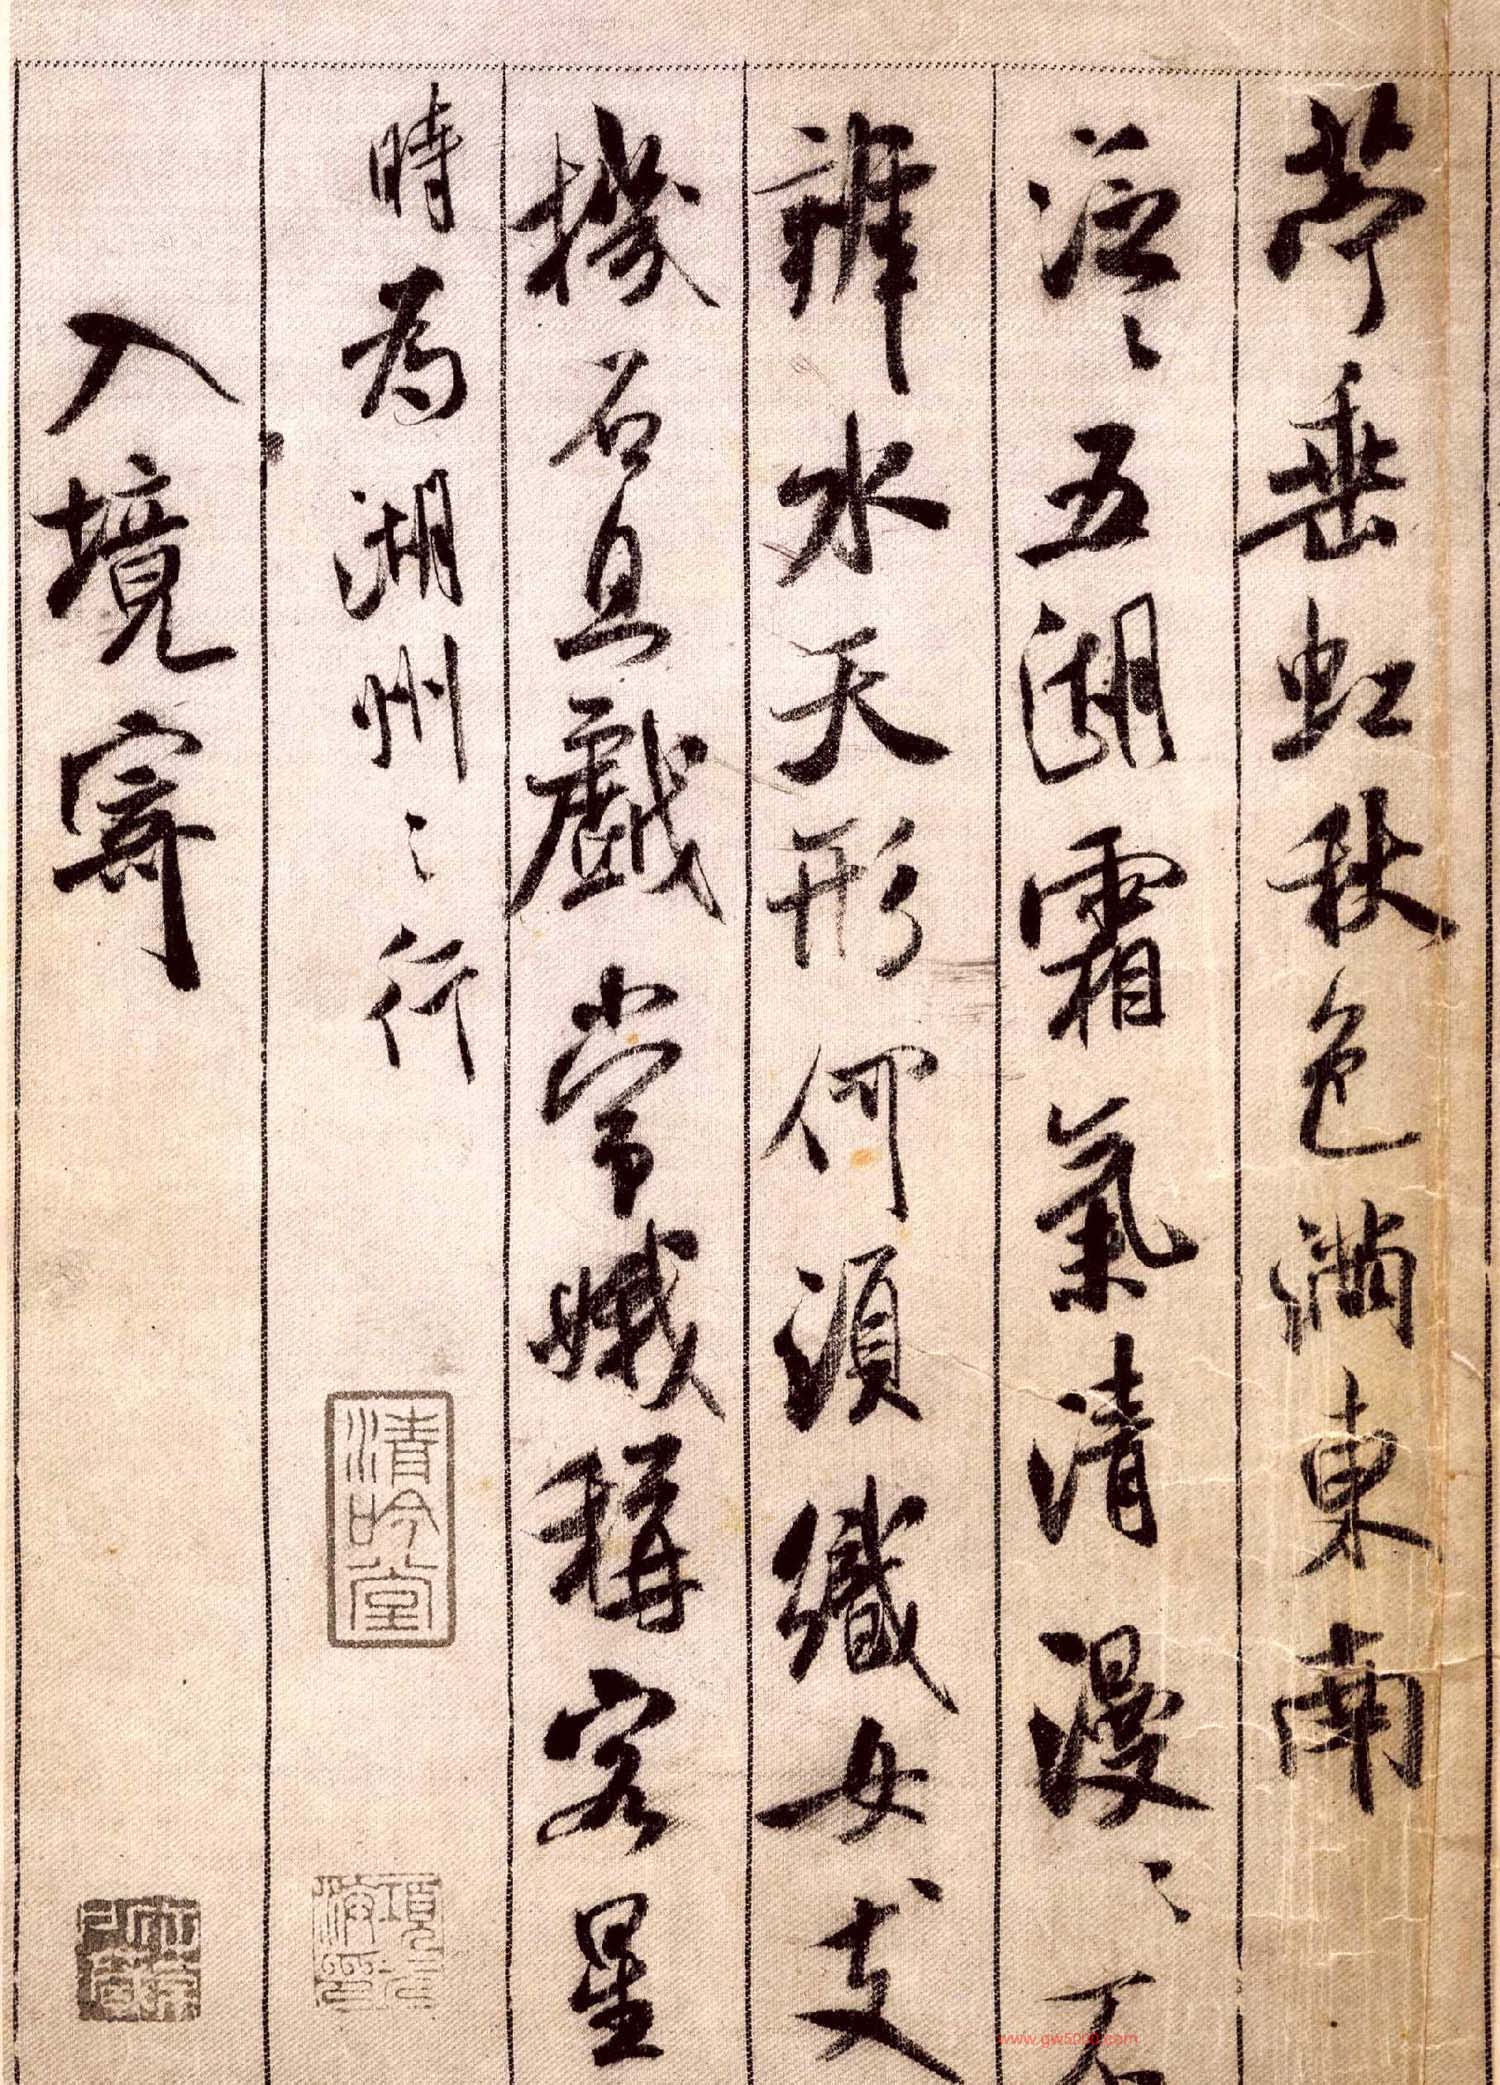 苧垂虹秋色滿東南
泛〻五湖霜氣清漫〻不
辨水天形何須織女支
機石且戲嫦娥稱客星
時為湖州〻行
入境寄
清吟堂
www.gw5000.com